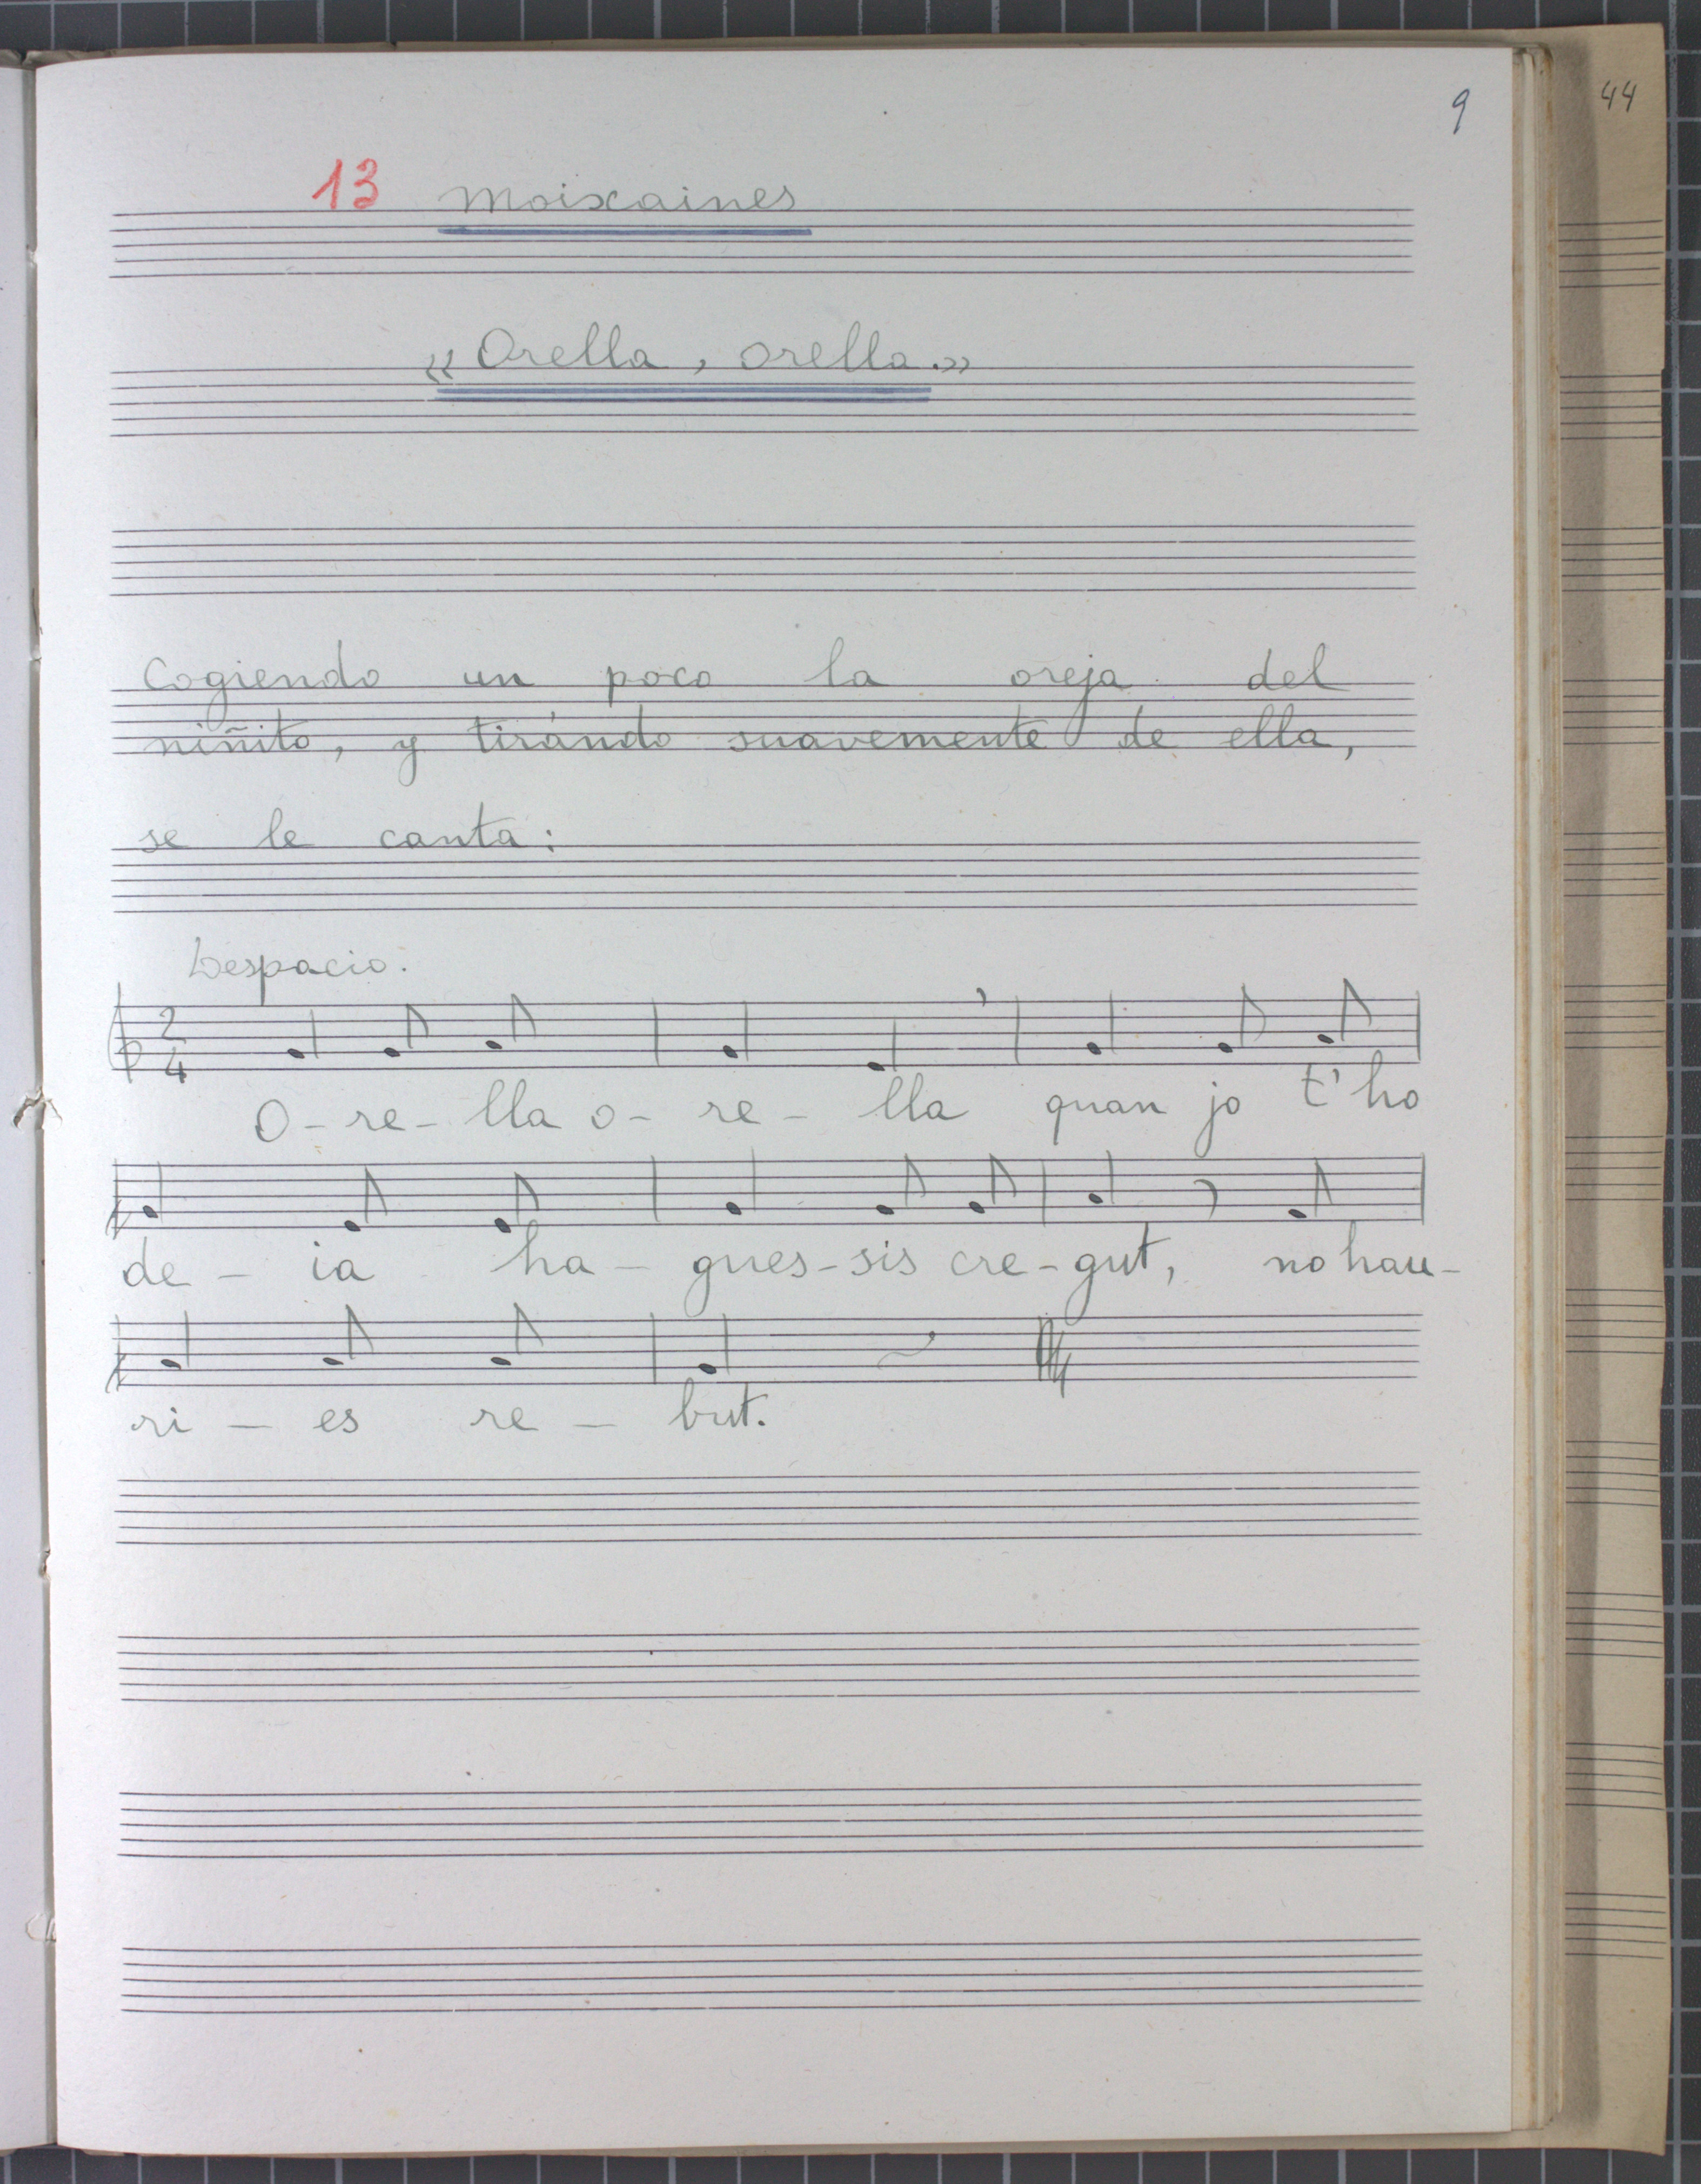 9
44
13 Moixaines
«Orella, orella.»
Cogiendo un poco la oreja del
niñito, y tirándo suavemente de ella,
se le canta:
Despacio.
2
4
O-re-lla o-re-lla quan jo t'ho
de-ia ha-gues-sis cre-gut, no hau-
ri-es re-but.